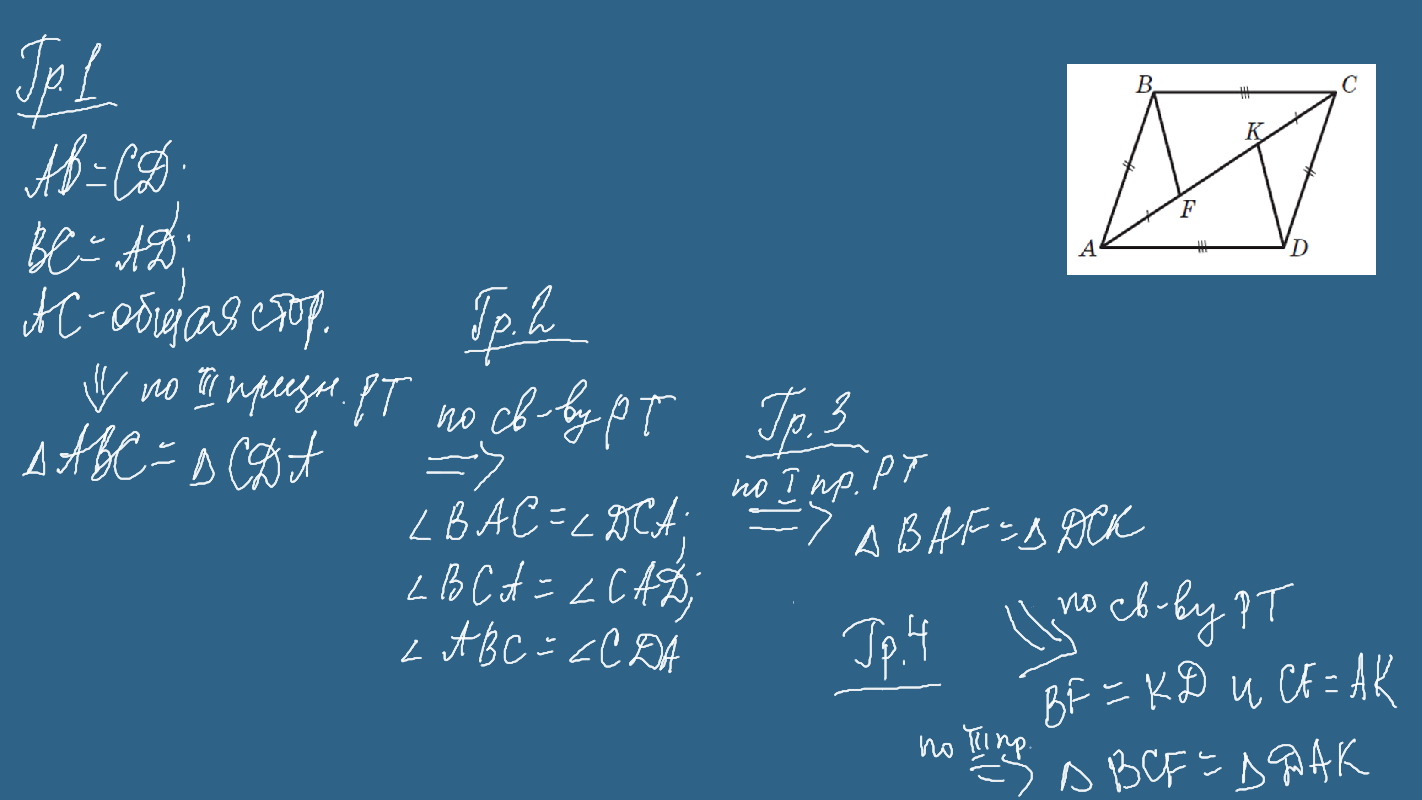 Гр.1
AB=CD;
BC=AD;
AC-общая стор.
⇓ по III призн. РТ
△ABC=△CDA
Гр.2
по св-ву РТ
⇒
∠BAC=∠DCA;
∠BCA=∠CAD;
∠ABC=∠CDA
Гр.3
по I пр. РТ
⇒ △BAF=△DCK
Гр.4
по св-ву РТ
BF=KD и CF=AK
по III пр.
⇒ △BCF=△DAK
B C
K
F
A D